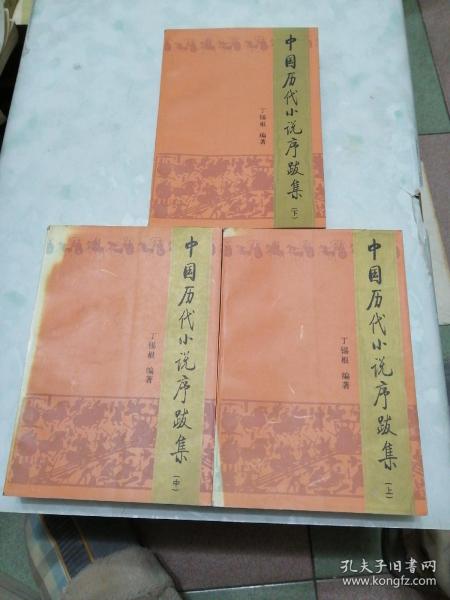 中国历代小说序跋集
(下)
丁锡根 编著
中国历代小说序跋集
(中)
丁锡根 编著
中国历代小说序跋集
(上)
丁锡根 编著
孔夫子旧书网
www.kongfz.com